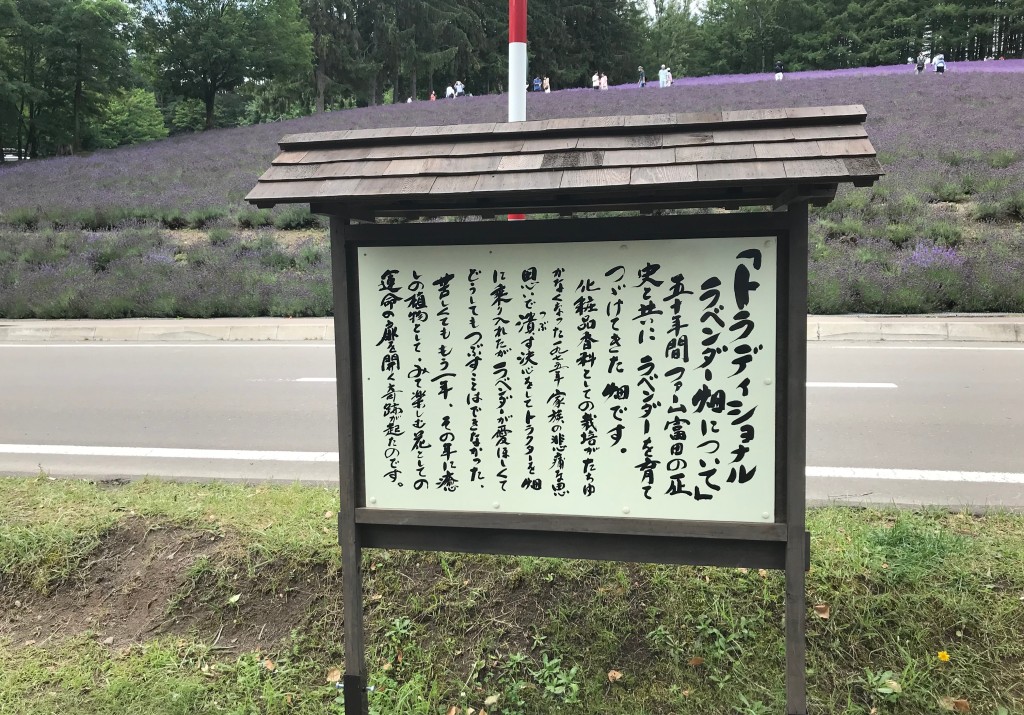 「トラディショナル
ラベンダー畑について」
五十年間ファーム富田の歴
史と共にラベンダーを育て
つづけてきた畑です。
化粧品香料としての栽培がたちゆ
かなくなった一九七五年家族の悲痛な思
思いで潰す決心をしてトラクターを畑
つぶ
に乗り入れたがラベンダーが愛ほしくて
どうしてもつぶすことはできなかった、
苦しくてももう一年、その年に癒
しの植物として、みて楽しむ花としての
運命の扉を開く奇跡が起たのです。